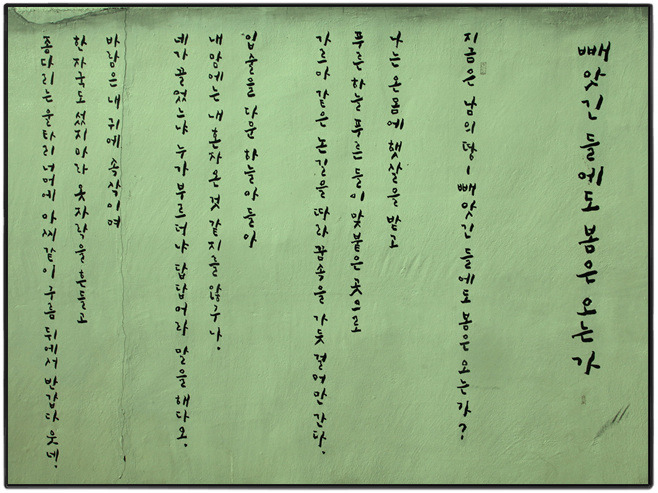 빼앗긴 들에도 봄은 오는가
지금은 남의 땅ㅡ빼앗긴 들에도 봄은 오는가?
나는 온 몸에 햇살을 받고
푸른 하늘 푸른 들이 맞붙은 곳으로
가르마 같은 논길을 따라 꿈속을 가듯 걸어만 간다.
입술을 다문 하늘아 들아
내 맘에는 내 혼자 온 것 같지를 않구나.
네가 끌었느냐 누가 부르더냐 답답어라 말을 해다오.
바람은 내 귀에 속삭이며
한 자국도 섰지마라 옷자락을 흔들고
종다리는 울타리 너머에 아씨같이 구름 뒤에서 반갑다 웃네.